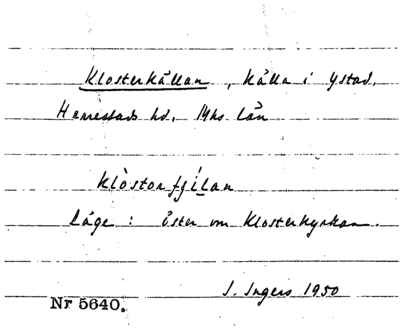 Klosterkällan, källa i Ystad,
Herrestads hd, Mhs län
klòstorfjílan
läge: öster om Klosterkyrkan.
I. Ingers 1950
Nr 5640.